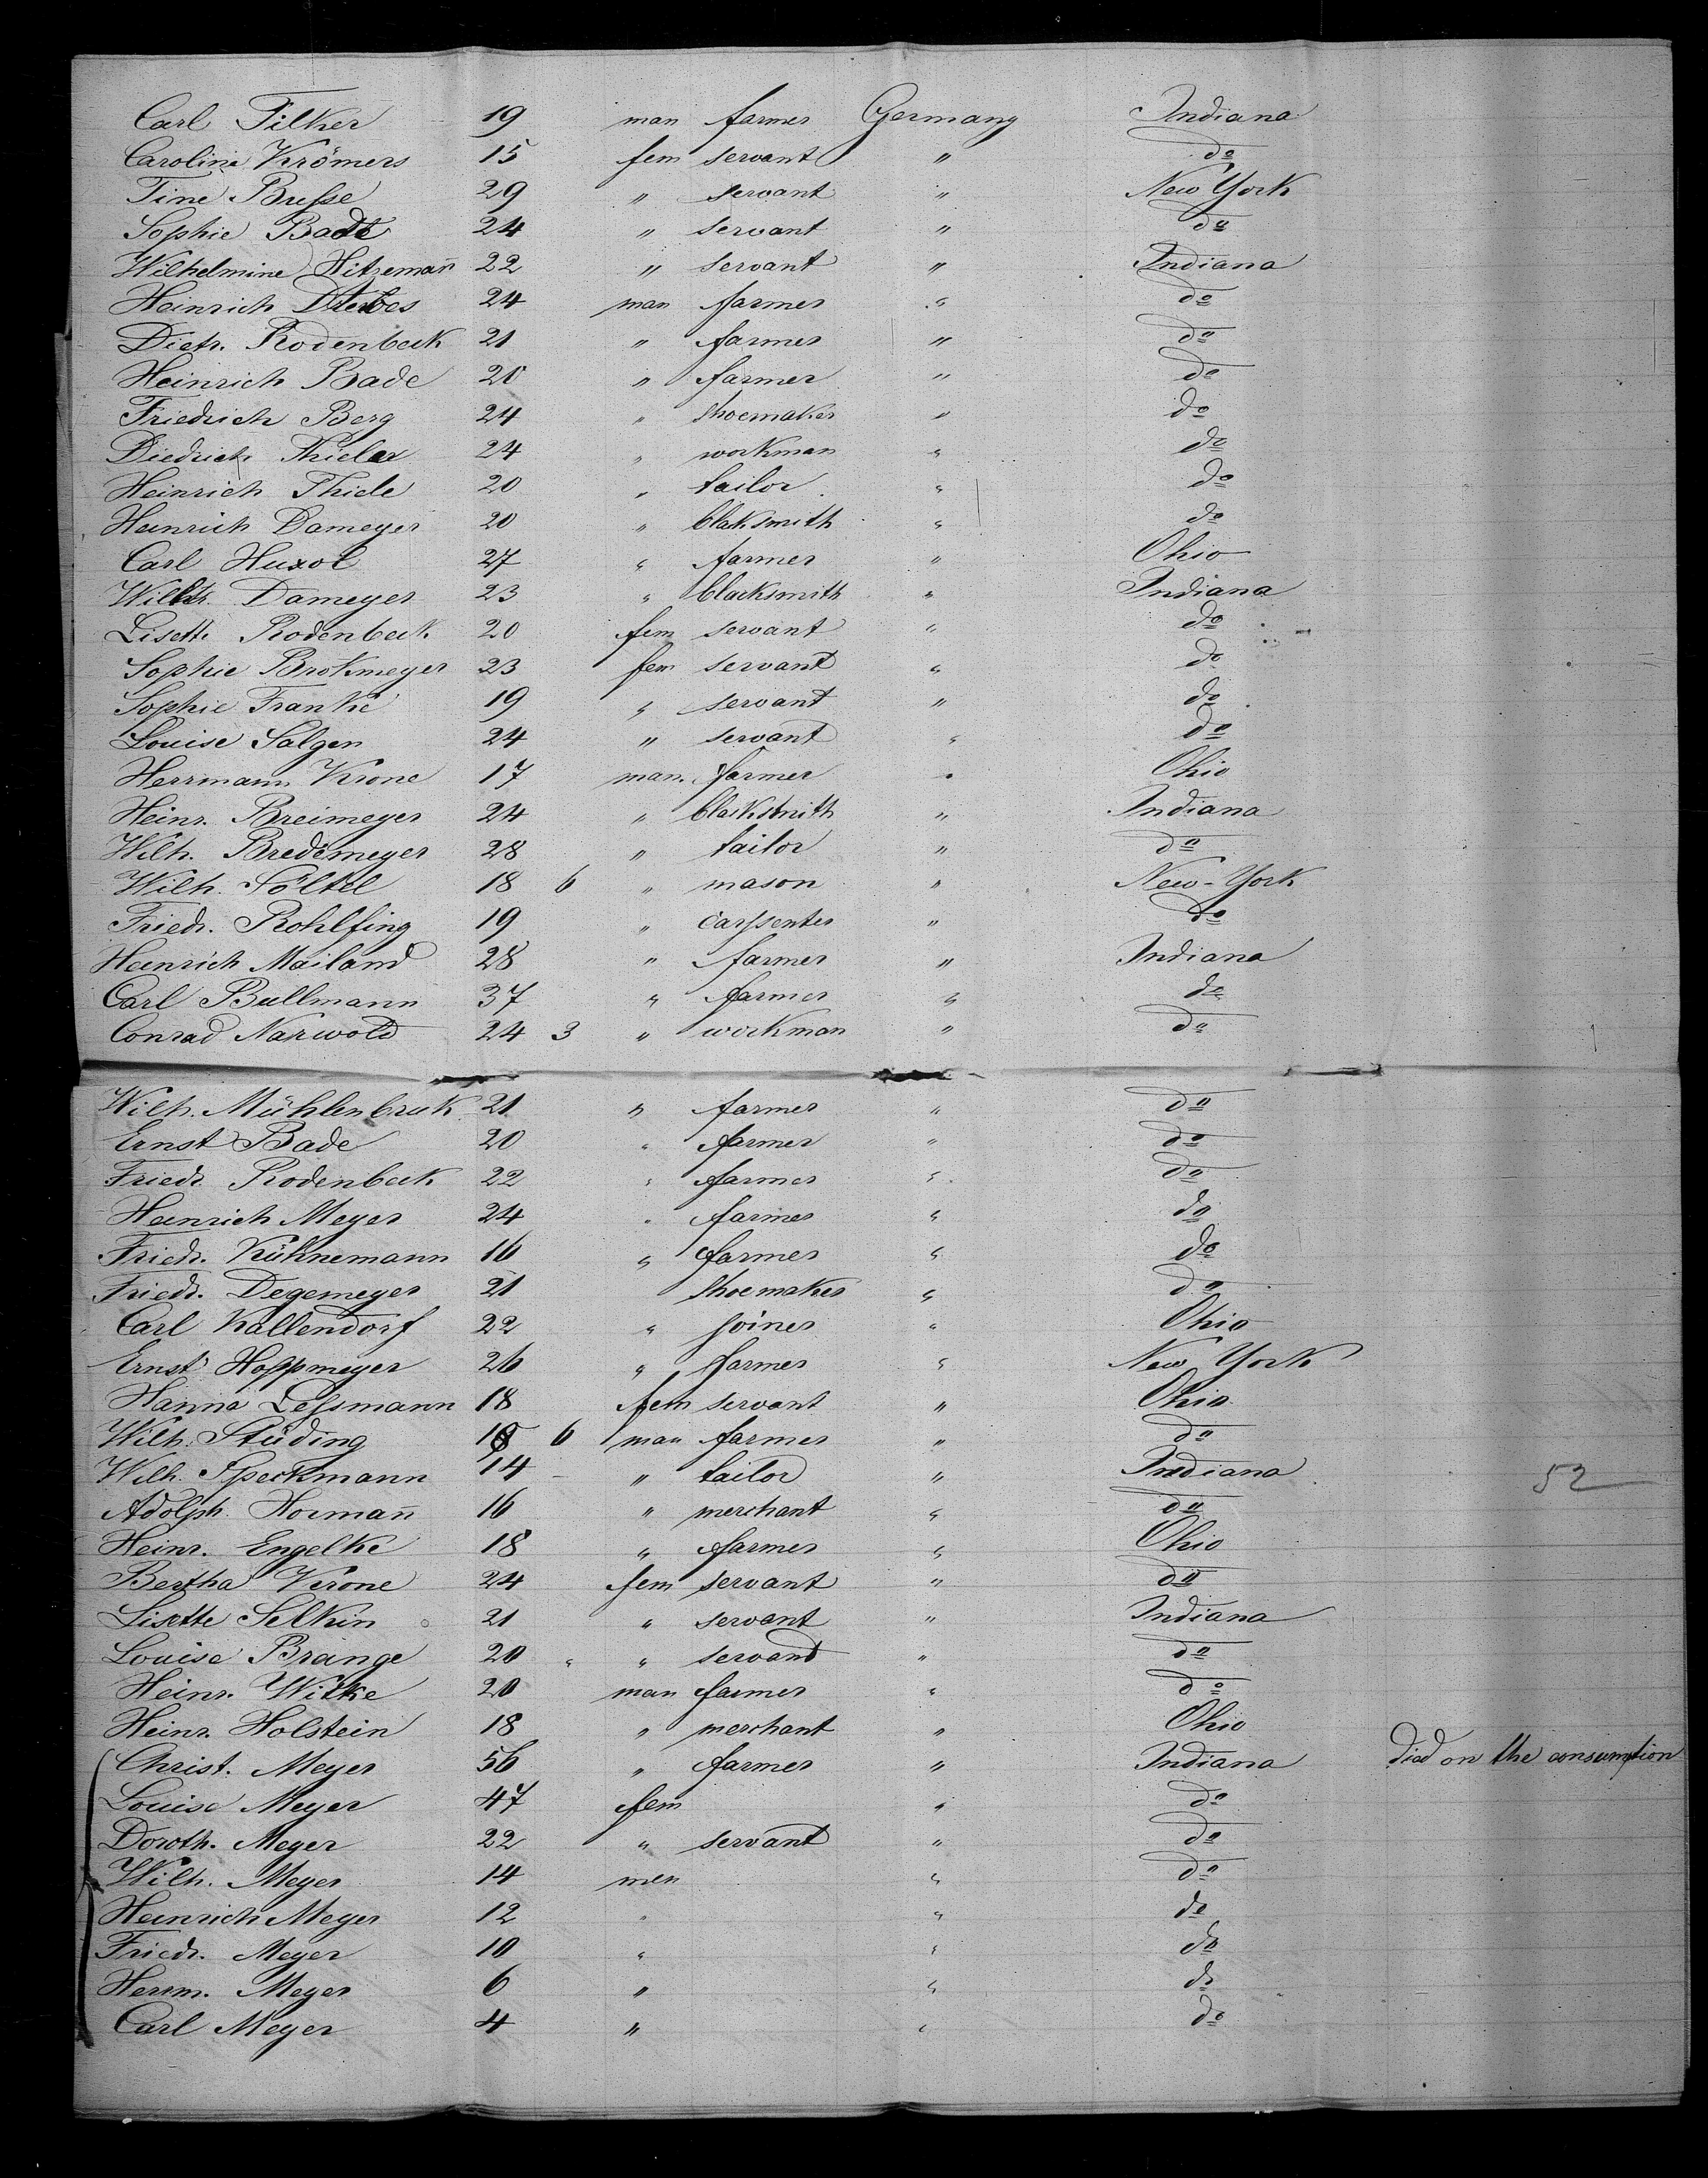 Carl Filker 19 man farmer Germany Indiana
Caroline Krömers 15 fem servant " do
Tine Busse 29 " servant " New York
Sophie Bade 24 " servant " do
Wilhelmine Hitzemañ 22 " servant " Indiana
Heinrich Drewes 24 man farmer " do
Dietr. Rodenbeck 21 " farmer " do
Heinrich Bade 20 " farmer " do
Friedrich Berg 24 " shoemaker " do
Diedrich Thiele 24 " workman " do
Heinrich Thiele 20 " tailor " do
Heinrich Dameyer 20 " blaksmith " do
Carl Huxol 27 " farmer " Ohio
Wilh. Dameyer 23 " blacksmith " Indiana
Lisette Rodenbeck 20 fem servant " do
Sophie Brokmeyer 23 fem servant " do
Sophie Franke 19 " servant " do
Louise Salgen 24 " servant " do
Herrmann Krone 17 man farmer " Ohio
Heinr. Breimeyer 24 " blacksmith " Indiana
Wilh. Bredemeyer 28 " tailor " do
Wilh. Söltel 18 6 " mason " New-York
Friedr. Rohlfing 19 " carpenter " do
Heinrich Mailand 28 " farmer " Indiana
Carl Bullmann 37 " farmer " do
Conrad Narwold 24 3 " workman " do
Wilh. Mühlenbruk 21 " farmer " do
Ernst Bade 20 " farmer " do
Friedr. Rodenbeck 22 " farmer " do
Heinrich Meyer 24 " farmer " do
Friedr. Kühnemann 16 " farmer " do
Friedr. Degemeyer 21 shoemaker " do
Carl Kallendorf 22 " joiner " Ohio
Ernst Hoppmeyer 26 " farmer " New York
Hanna Lessmann 18 fem servant " Ohio
Wilh. Stüding 18 6 man farmer " do
Wilh. Speckmann 14 " tailor " Indiana 52
Adolph Hormañ 16 " merchant " do
Heinr. Engelke 18 " farmer " Ohio
Bertha Krone 24 fem servant " do
Lisette Selkin 21 " servant " Indiana
Louise Brange 20 " " servand " do
Heinr. Witke 20 man farmer " do
Heinr. Holstein 18 " merchant " Ohio
Christ. Meyer 56 " farmer " Indiana died on the consumption
Louise Meyer 47 fem " do
Doroth. Meyer 22 " servant " do
Wilh. Meyer 14 men " do
Heinrich Meyer 12 " " do
Friedr. Meyer 10 " " do
Herrm. Meyer 6 " " do
Carl Meyer 4 " " do